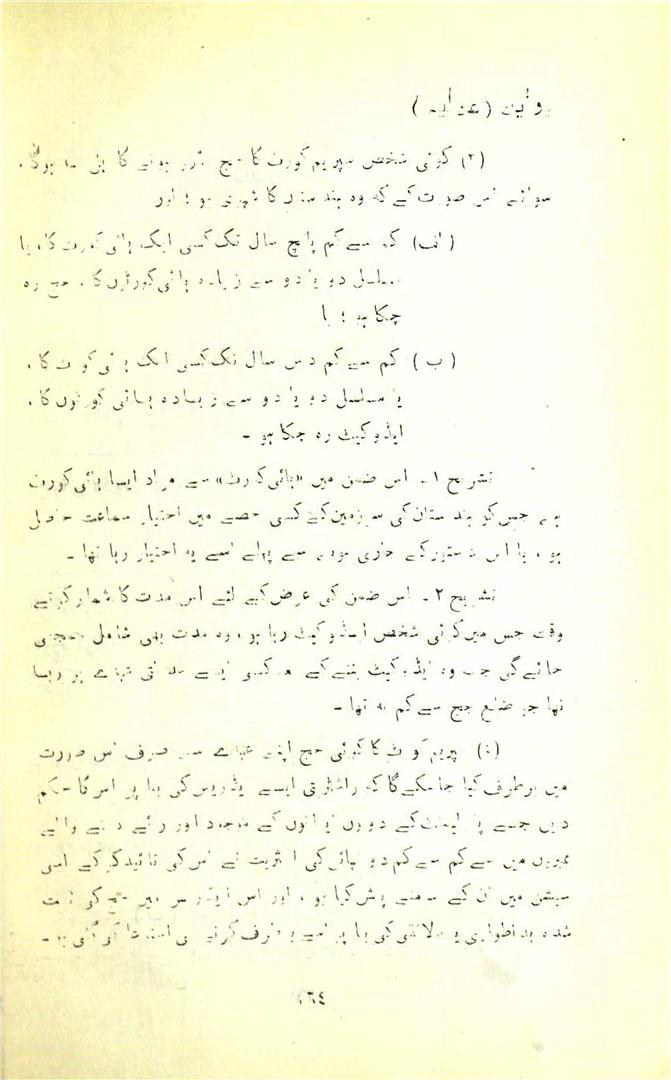 یونین (عدلیہ)
(۳) کوئی شخص سپریم کورٹ کا جج مقرر ہونے کا اہل نہ ہوگا،
سوائے اس صورت کے کہ وہ ہندستان کا شہری ہو ؛ اور
(الف) کم سے کم پانچ سال تک کسی ایک ہائی کورٹ کا، یا
مسلسل دو یا دو سے زیادہ ہائی کورٹوں کا، جج رہ
چکا ہو ؛ یا
(ب) کم سے کم دس سال تک کسی ایک ہائی کورٹ کا،
یا مسلسل دو یا دو سے زیادہ ہائی کورٹوں کا،
ایڈوکیٹ رہ چکا ہو ۔
تشریح ۱ ۔ اس ضمن میں «ہائی کورٹ» سے مراد ایسا ہائی کورٹ
ہے جس کو ہندستان کی سرزمین کے کسی حصے میں اختیار سماعت حاصل
ہو ، یا اس دستور کے جاری ہونے سے پہلے اسے یہ اختیار رہا تھا ۔
تشریح ۲ ۔ اس ضمن کی غرض کے لئے اس مدت کا شمار کرتے
وقت جس میں کوئی شخص ایڈوکیٹ رہا ہو ، وہ مدت بھی شامل سمجھی
جائے گی جب وہ ایڈوکیٹ بننے کے بعد کسی ایسے عدالتی عہدے پر رہا
تھا جو ضلع جج سے کم نہ تھا ۔
(٤) سپریم کورٹ کا کوئی جج اپنے عہدے سے صرف اس صورت
میں برطرف کیا جا سکے گا کہ راشٹرپتی ایسے ایڈریس کی بنا پر اس کا حکم
دیں جسے پارلیمنٹ کے دونوں ایوانوں کے موجود اور رائے دینے والے
ممبروں میں سے کم سے کم دو تہائی کی اکثریت نے اس کی تائید کر کے اسی
سیشن میں ان کے سامنے پیش کیا ہو ، اور اس ایڈریس میں جج کی ثابت
شدہ بد اطواری یا نالائقی کی بنا پر اسے برطرف کرنے کی استدعا کی گئی ہو ۔